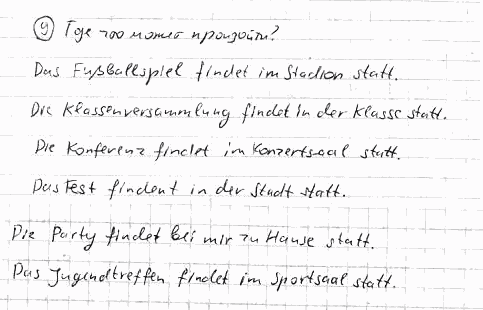 9) Где что может произойти?
Das Fußballspiel findet im Stadion statt.
Die Klassenversammlung findet in der Klasse statt.
Die Konferenz findet im Konzertsaal statt.
Das Fest findent in der Stadt statt.
Die Party findet bei mir zu Hause statt.
Das Jugendtreffen findet im Sportsaal statt.